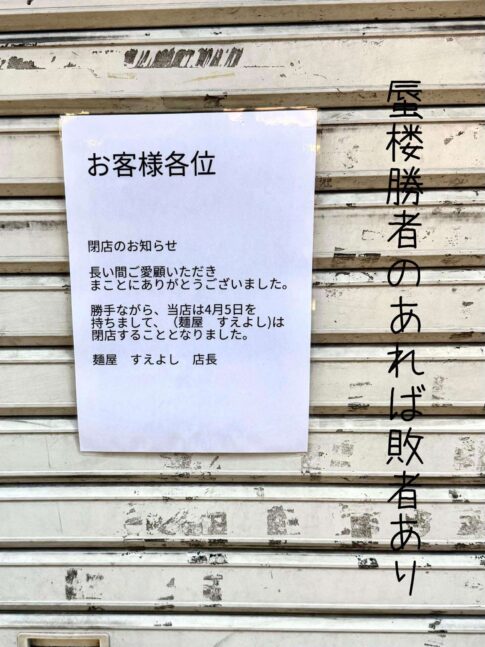 お客様各位
閉店のお知らせ
長い間ご愛顧いただき
まことにありがとうございました。
勝手ながら、当店は4月5日を
持ちまして、（麺屋　すえよし)は
閉店することとなりました。
麺屋　すえよし　店長
蜃楼勝者のあれば敗者あり